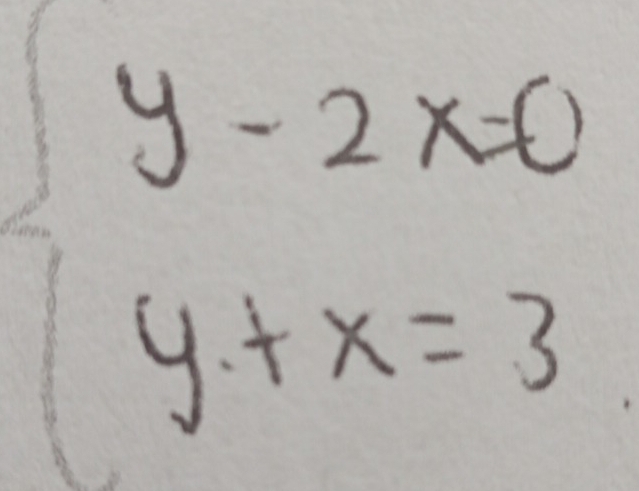 y - 2x = 0
y + x = 3